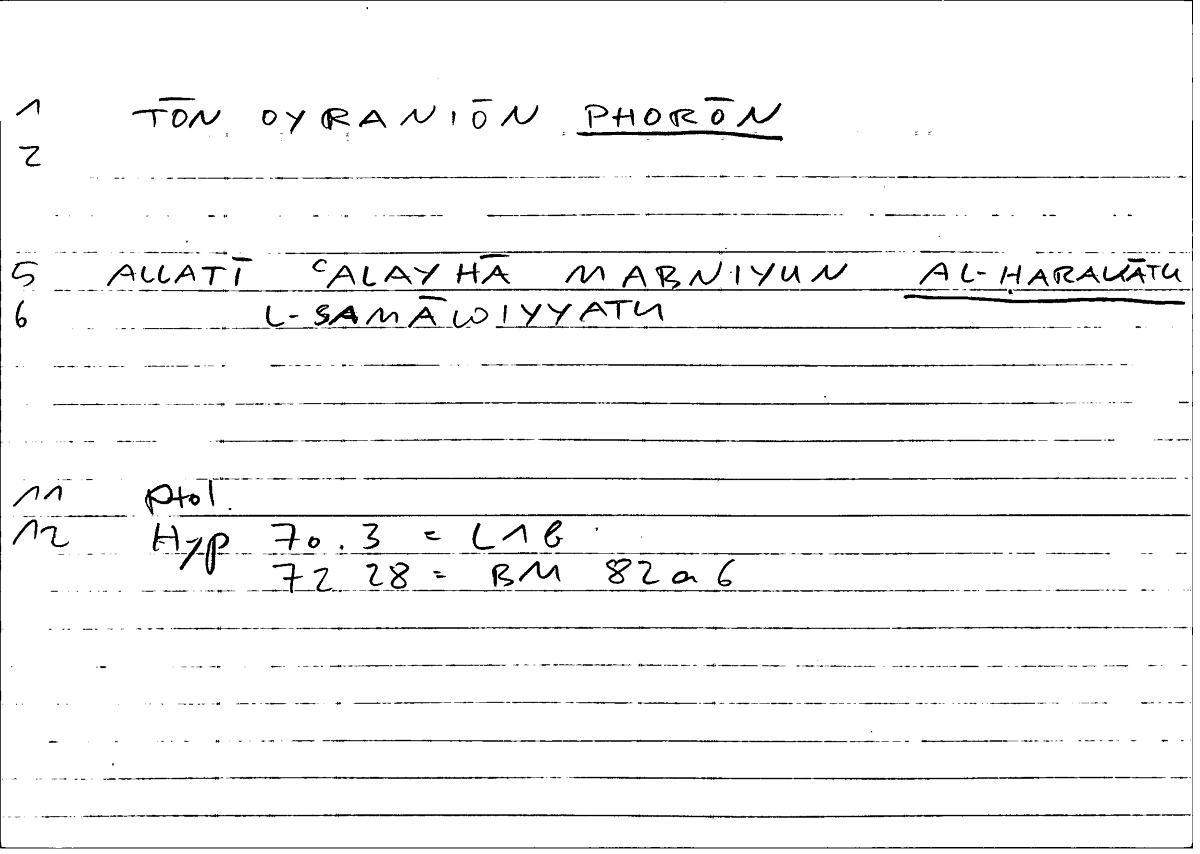 1 TŌN OYRANIŌN PHORŌN
2
5 ALLATĪ ʿALAYHĀ MABNIYUN AL-ḤARAKĀTU
6 L-SAMĀWIYYATU
11 Ptol.
12 Hyp 70.3 = L1b
72 28 = BM 82a6